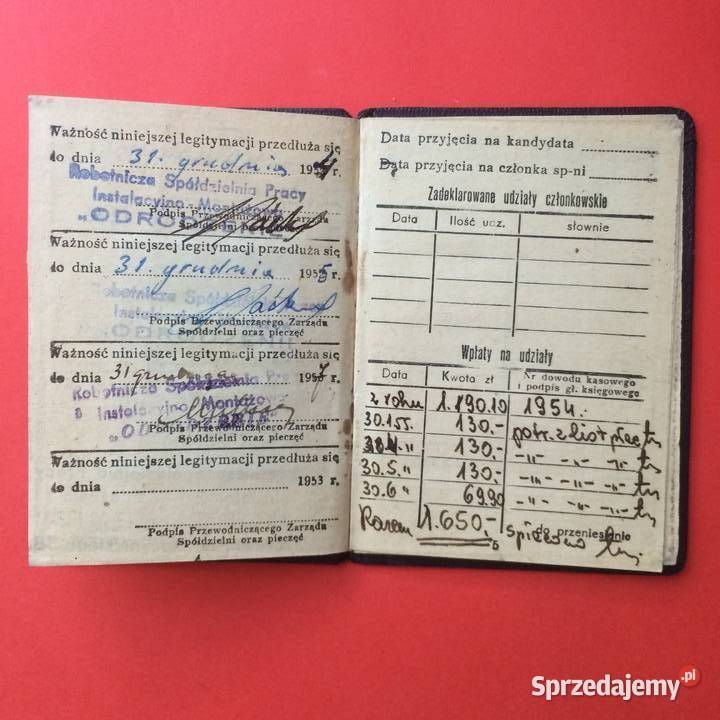 Ważność niniejszej legitymacji przedłuża się
do dnia 31. grudnia 1954 r.
Robotnicza Spółdzielnia Pracy
Instalacyjno-Montażowa
Podpis Przewodniczącego Zarządu
Spółdzielni oraz pieczęć
Ważność niniejszej legitymacji przedłuża się
do dnia 31. grudnia 1955 r.
Robotnicza
Podpis Przewodniczącego Zarządu
Spółdzielni oraz pieczęć
Ważność niniejszej legitymacji przedłuża się
do dnia 31 grudnia 1957 r.
Robotnicza Spółdzielnia
Instalacyjno Montażowa
Podpis Przewodniczącego Zarządu
Spółdzielni oraz pieczęć
Ważność niniejszej legitymacji przedłuża się
do dnia 1953 r.
Podpis Przewodniczącego Zarządu
Spółdzielni oraz pieczęć
Data przyjęcia na kandydata
Data przyjęcia na członka sp-ni
Zadeklarowane udziały członkowskie
Data Ilość ucz. słownie
Wpłaty na udziały
Data Kwota zł Nr dowodu kasowego
i podpis gł. księgowego
z roku 1.190.10 1954.
30.1 55. 130.- potr. z list płac
30.4. " 130.- -"- -"- -"-
30.5. " 130.- -"- -"- -"-
30.6 " 69.90 -"- -"- -"-
Razem 1.650.- do przeniesienia
5
Sprzedajemy.pl